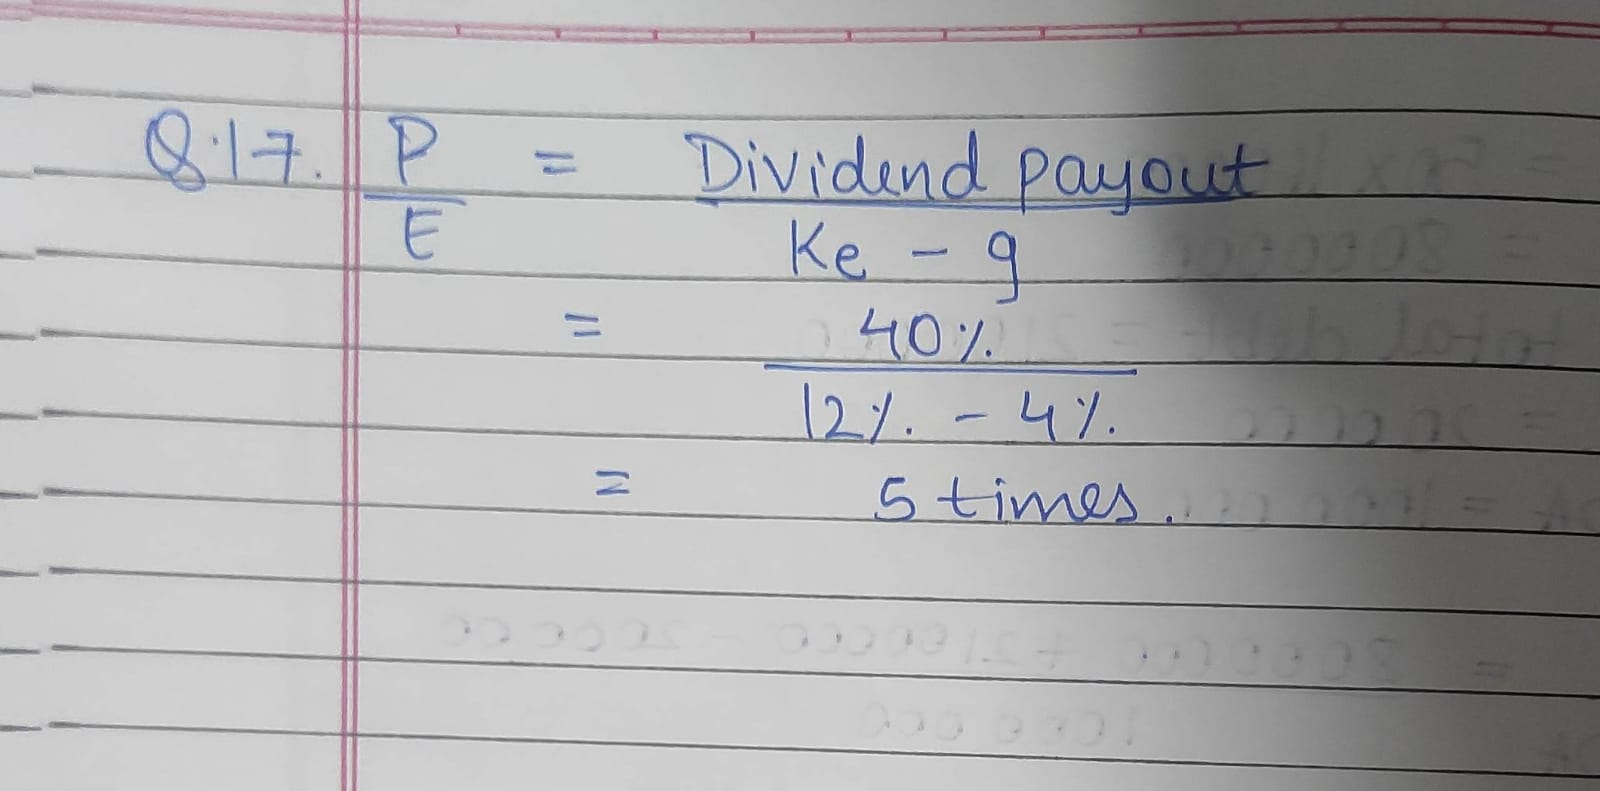 Q.17. P = Dividend payout
E Ke - g
= 40%
12% - 4%
= 5 times.